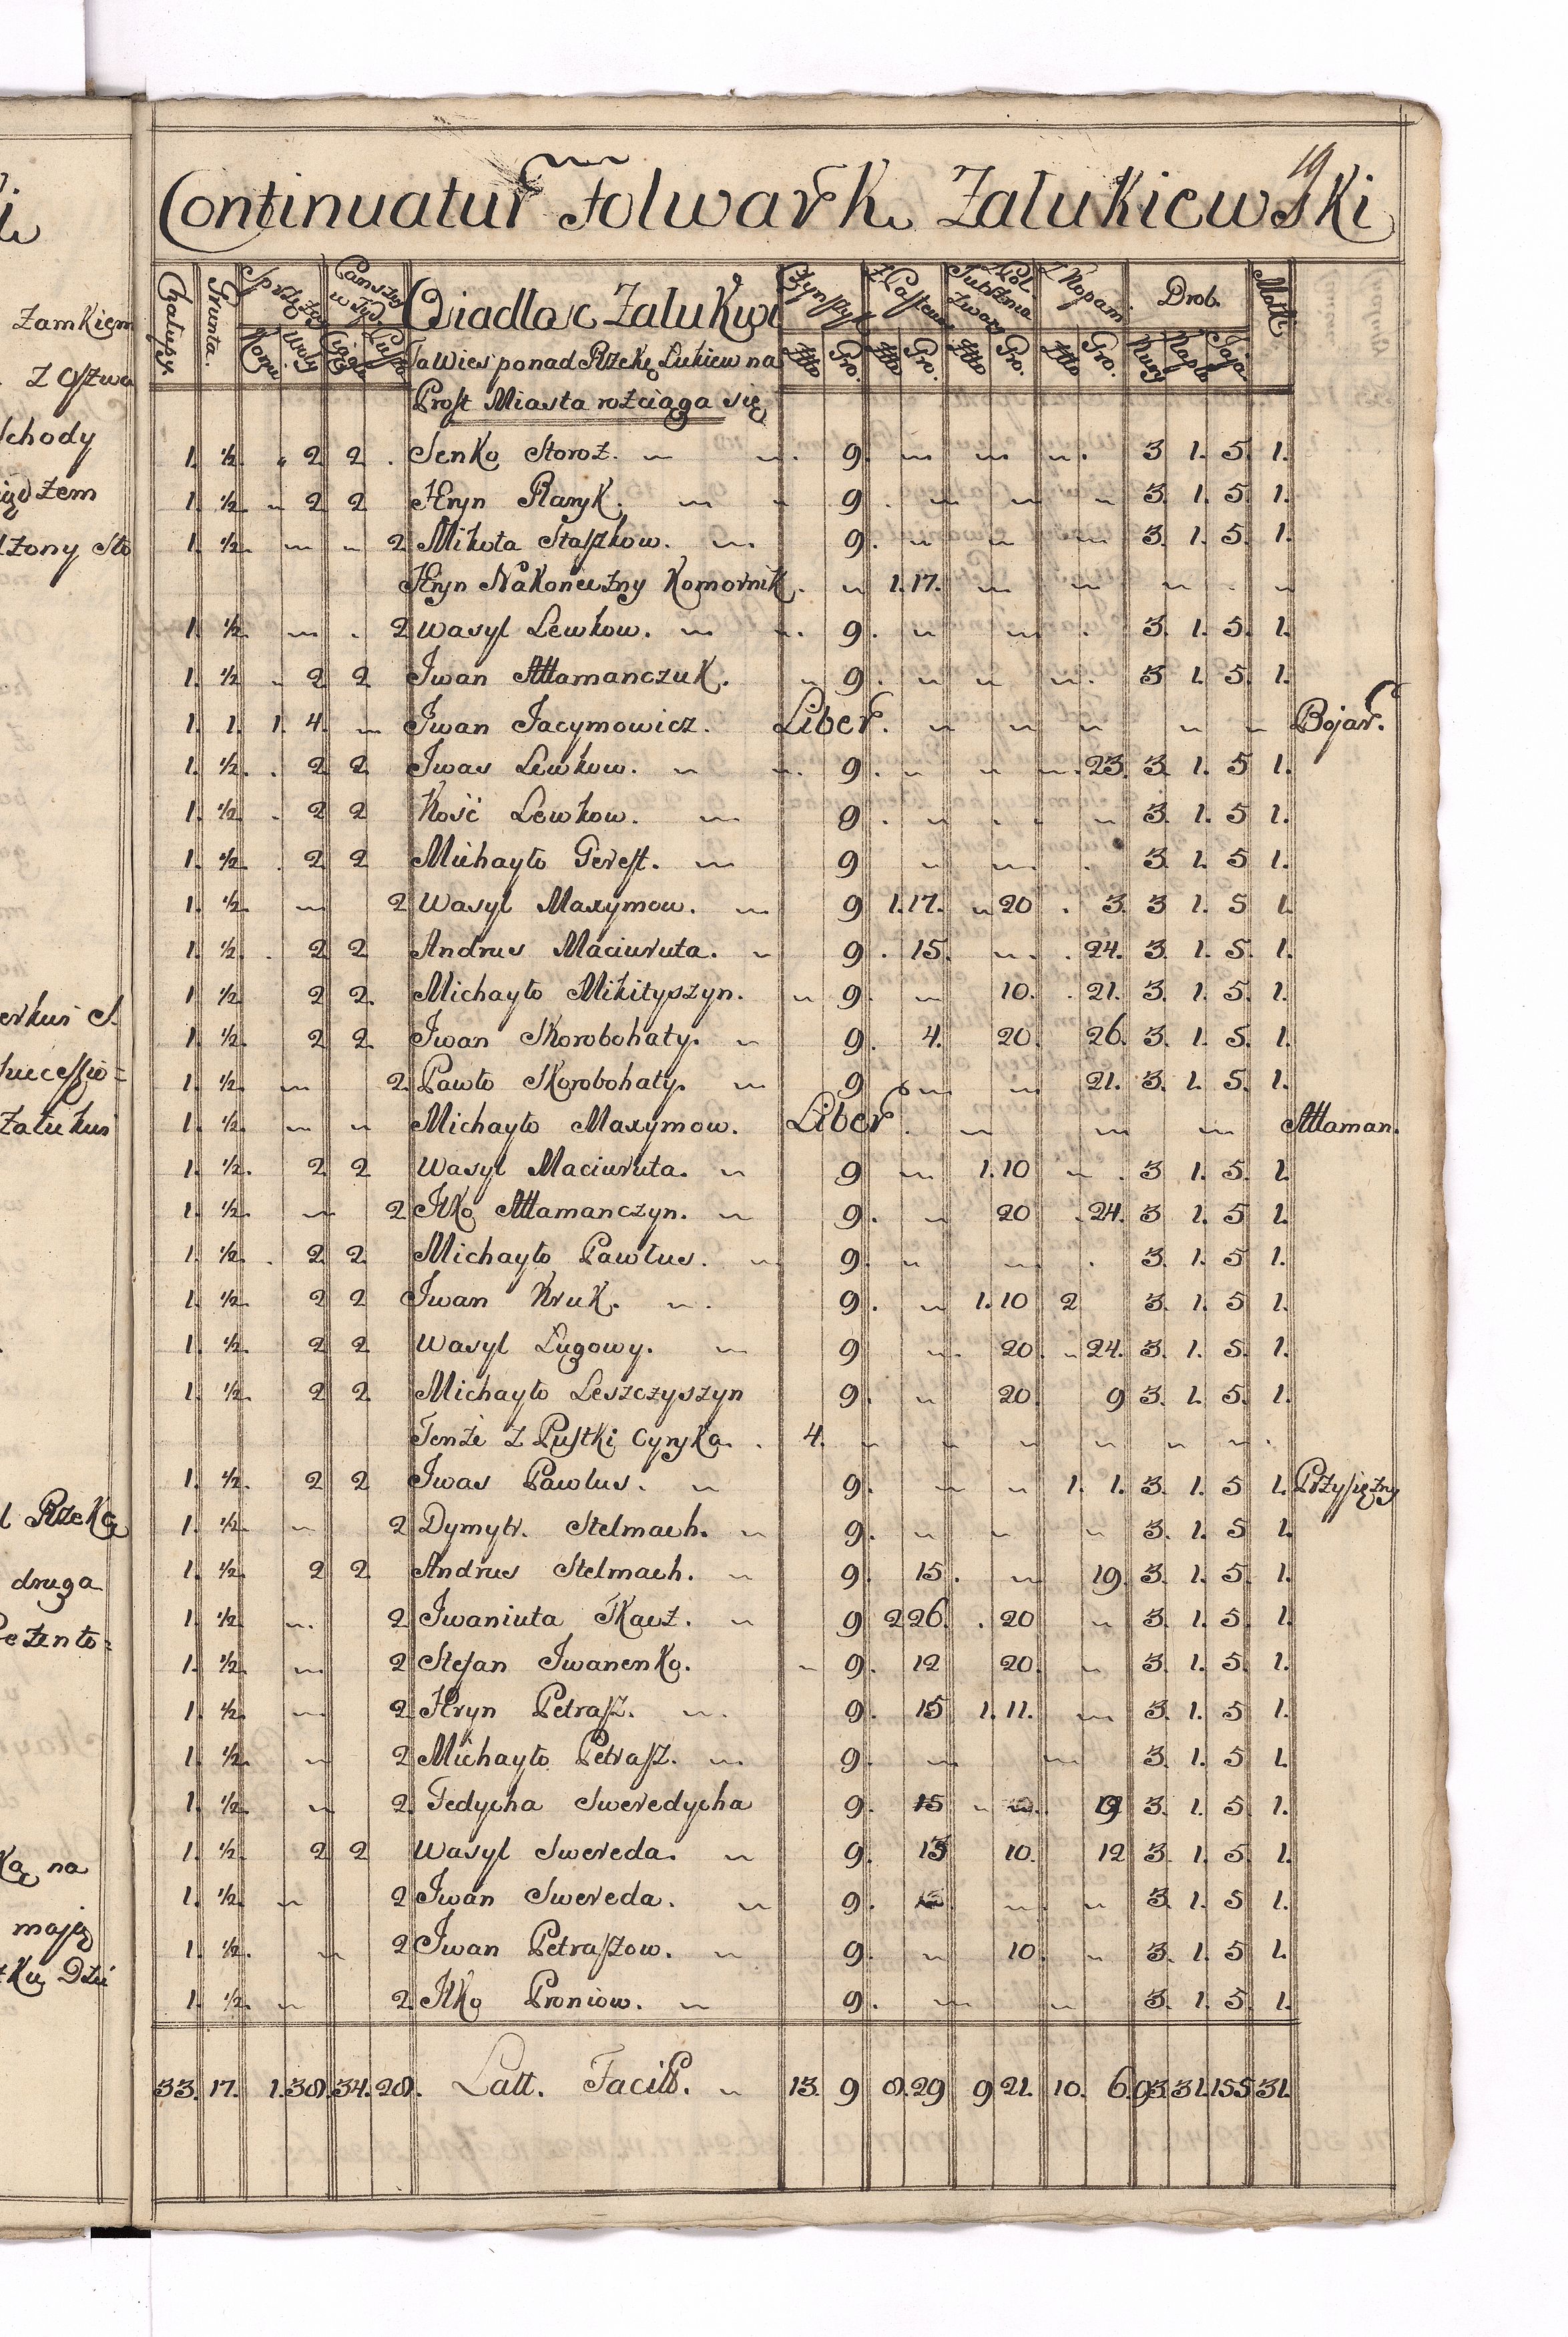 19
Continuatur Folwark Zalukiewski
Chalupy. Grunta. Sprzężay Konie Woły Pansczy. w Tyg. Ciągłe Osiadłość Załukwi Czynszu Złło Gro. Złło Gro. Złło Gro. Złło Gro. Drob. Kury Kapło Jaja Motk
Ta Wies ponad Rzekę Lukiew na
Prost Miasta rozciąga się
1. ½ 2 2 Senko Storoz. 9. 3 1. 5. 1.
1. ½ 2 2 Hryn Raryk. 9. 3. 1. 5. 1.
1. ½ 2 Mikoła Staszkow. 9. 3. 1. 5. 1.
Hryn Nakoneczny Komornik. 1.17.
1. ½ 2 Wasyl Lewkow. 9. 3. 1. 5. 1.
1. ½ 2 2 Iwan Attamanczuk. 9. 3 1. 5. 1.
1. 1. 1. 4. Iwan Jacymowicz. Liber. Bojar.
1. ½ 2 2 Iwas Lewkow. 9. 23. 3. 1. 5 1.
1. ½ 2 2 Kość Lewkow. 9. 3. 1. 5 1.
1. ½ 2 2 Michayło Gerest. 9 3. 1. 5 1.
1. ½ 2 Wasyl Maxymow. 9 1.17. 20 3. 3 1. 5 1.
1. ½ 2 2 Andrus Maciuruta. 9. 15. 24. 3. 1. 5. 1.
1 ½ 2 2. Michayło Mikityszyn. 9. 10. 21. 3. 1. 5. 1.
1 ½ 2 2 Iwan Skorobohaty. 9. 4. 20. 26. 3. 1. 5. 1.
1. ½ 2 Pawło Skorobohaty. 9 21. 3. 1. 5. 1.
1. ½ Michayło Maxymow. Liber Attaman.
1. ½. 2 2 Wasyl Maciuruta. 9 1.10 3 1. 5. 1.
1. ½. 2 Ilko Attamanczyn. 9. 20 24. 3 1. 5 1.
1. ½ 2 2 Michayło Pawlus. 9. 3. 1. 5 1.
1. ½ 2 2 Iwan Kruk. 9. 1.10 2 3. 1. 5 1.
1. ½ 2 2 Wasyl Lugowy. 9 20. 24. 3. 1. 5. 1.
1. ½ 2 2 Michayło Leszczyszyn 9. 20. 9 3. 1. 5. 1.
Tenże z Pustki Cyryka. 4.
1. ½ 2 2 Iwas Pawlus. 9. 1. 1. 3. 1. 5 1. Przysiężny
1. ½ 2 Dymytr. Stelmach. 9. 3. 1. 5 1.
1. ½ 2 2 Andrus Stelmach. 9. 15. 19. 3. 1. 5. 1.
1. ½ 2 Iwaniuta Tkacz. 9 2 26. 20 3. 1. 5. 1.
1. ½ 2 Stefan Iwanenko. 9. 12 20. 3. 1. 5. 1.
1. ½ 2 Hryn Petrasz. 9. 15 1. 11. 3. 1. 5 1.
1. ½ 2 Michayło Petrasz. 9. 3. 1. 5 1.
1. ½ 2. Fedycha Sweredycha 9. 15 19 3. 1. 5 1.
1. ½ 2 2 Wasyl Swereda. 9. 13 10. 12 3. 1. 5. 1.
1. ½ 2 Iwan Swereda. 9. 3. 1. 5 1.
1. ½. 2 Iwan Petraszow. 9. 10. 3. 1. 5 1.
1. ½. 2 Ilko Proniow. 9. 3. 1. 5 1.
33. 17. 1. 38. 34. 28. Latt. Facit. 13. 9 8.29 9 21. 10. 6. 93. 31. 155 31.
Zamkiem
chody
druga
Rzeką
mają
na